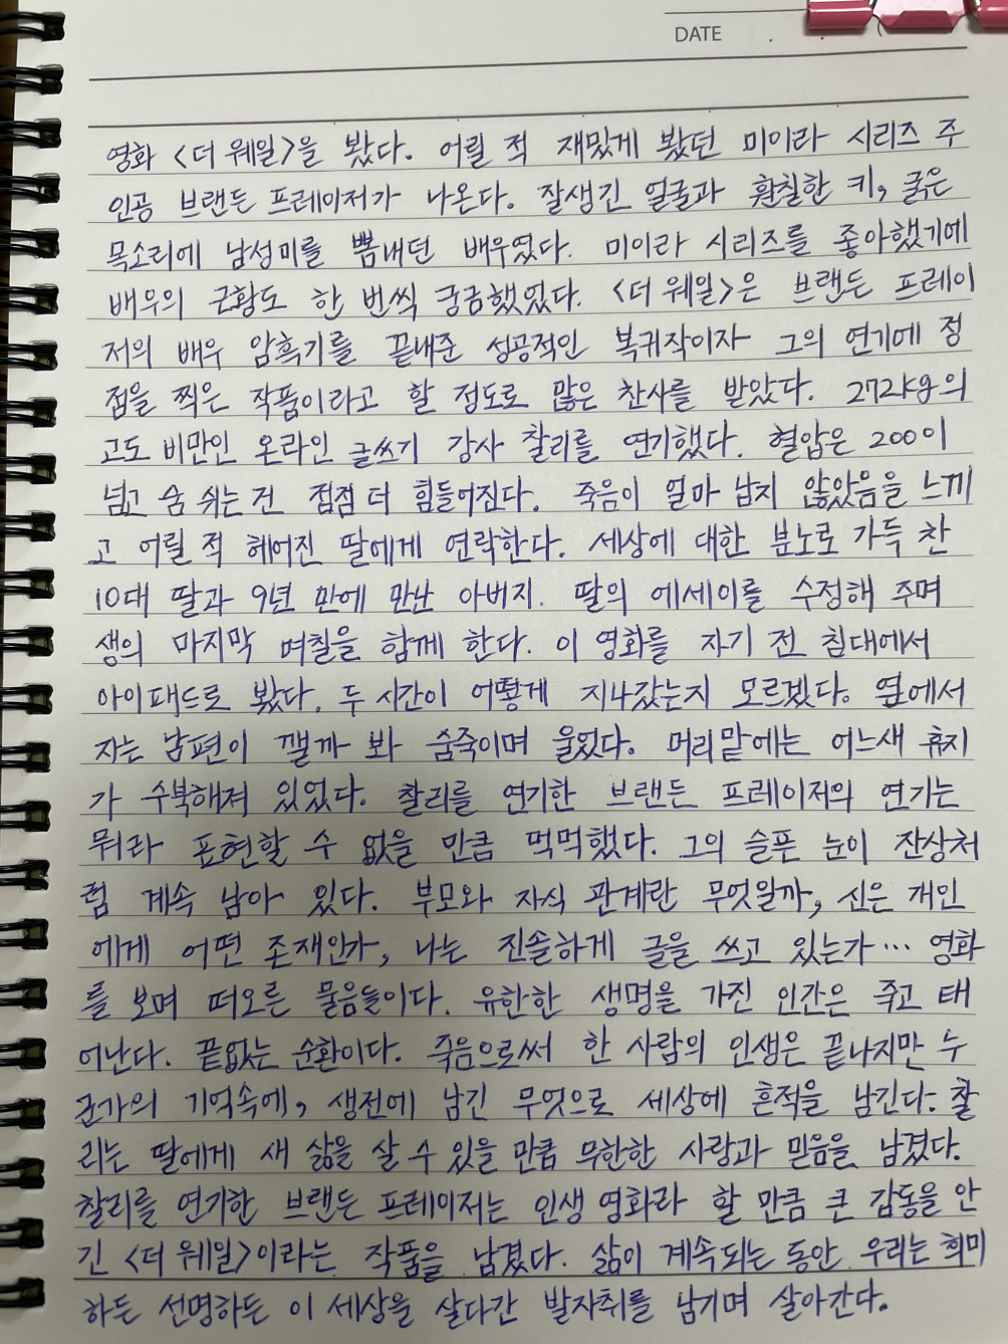 DATE . . (
영화 <더 웨일>을 봤다. 어릴 적 재밌게 봤던 미이라 시리즈 주
인공 브랜든 프레이저가 나온다. 잘생긴 얼굴과 훤칠한 키, 굵은
목소리에 남성미를 뽐내던 배우였다. 미이라 시리즈를 좋아했기에
배우의 근황도 한 번씩 궁금했었다. <더 웨일>은 브랜든 프레이
저의 배우 암흑기를 끝내준 성공적인 복귀작이자 그의 연기에 정
점을 찍은 작품이라고 할 정도로 많은 찬사를 받았다. 272kg의
고도 비만인 온라인 글쓰기 강사 찰리를 연기했다. 혈압은 200이
넘고 숨 쉬는 건 점점 더 힘들어진다. 죽음이 얼마 남지 않았음을 느끼
고 어릴 적 헤어진 딸에게 연락한다. 세상에 대한 분노로 가득 찬
10대 딸과 9년 만에 만난 아버지. 딸의 에세이를 수정해 주며
생의 마지막 며칠을 함께 한다. 이 영화를 자기 전 침대에서
아이패드로 봤다. 두 시간이 어떻게 지나갔는지 모르겠다. 옆에서
자는 남편이 깰까 봐 숨죽이며 울었다. 머리맡에는 어느새 휴지
가 수북해져 있었다. 찰리를 연기한 브랜든 프레이저의 연기는
뭐라 표현할 수 없을 만큼 먹먹했다. 그의 슬픈 눈이 잔상처
럼 계속 남아 있다. 부모와 자식 관계란 무엇일까, 신은 개인
에게 어떤 존재인가, 나는 진솔하게 글을 쓰고 있는가… 영화
를 보며 떠오른 물음들이다. 유한한 생명을 가진 인간은 죽고 태
어난다. 끝없는 순환이다. 죽음으로써 한 사람의 인생은 끝나지만 누
군가의 기억속에, 생전에 남긴 무엇으로 세상에 흔적을 남긴다. 찰
리는 딸에게 새 삶을 살 수 있을 만큼 무한한 사랑과 믿음을 남겼다.
찰리를 연기한 브랜든 프레이저는 인생 영화라 할 만큼 큰 감동을 안
긴 <더 웨일>이라는 작품을 남겼다. 삶이 계속되는 동안 우리는 희미
하든 선명하든 이 세상을 살다간 발자취를 남기며 살아간다.